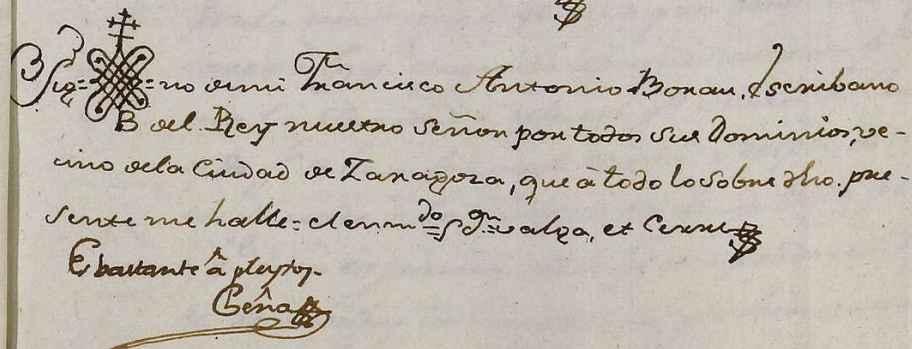 Sig=no de mi Francisco Antonio Borau, Escribano
del Rey nuestro Señor por todos sus Dominios, ve-
cino dela Ciudad de Zaragoza, que â todo lo sobre dho. pre-
sente me halle= el enmdo= valga, et Cerre
Es bastante â pleytos.
Peña